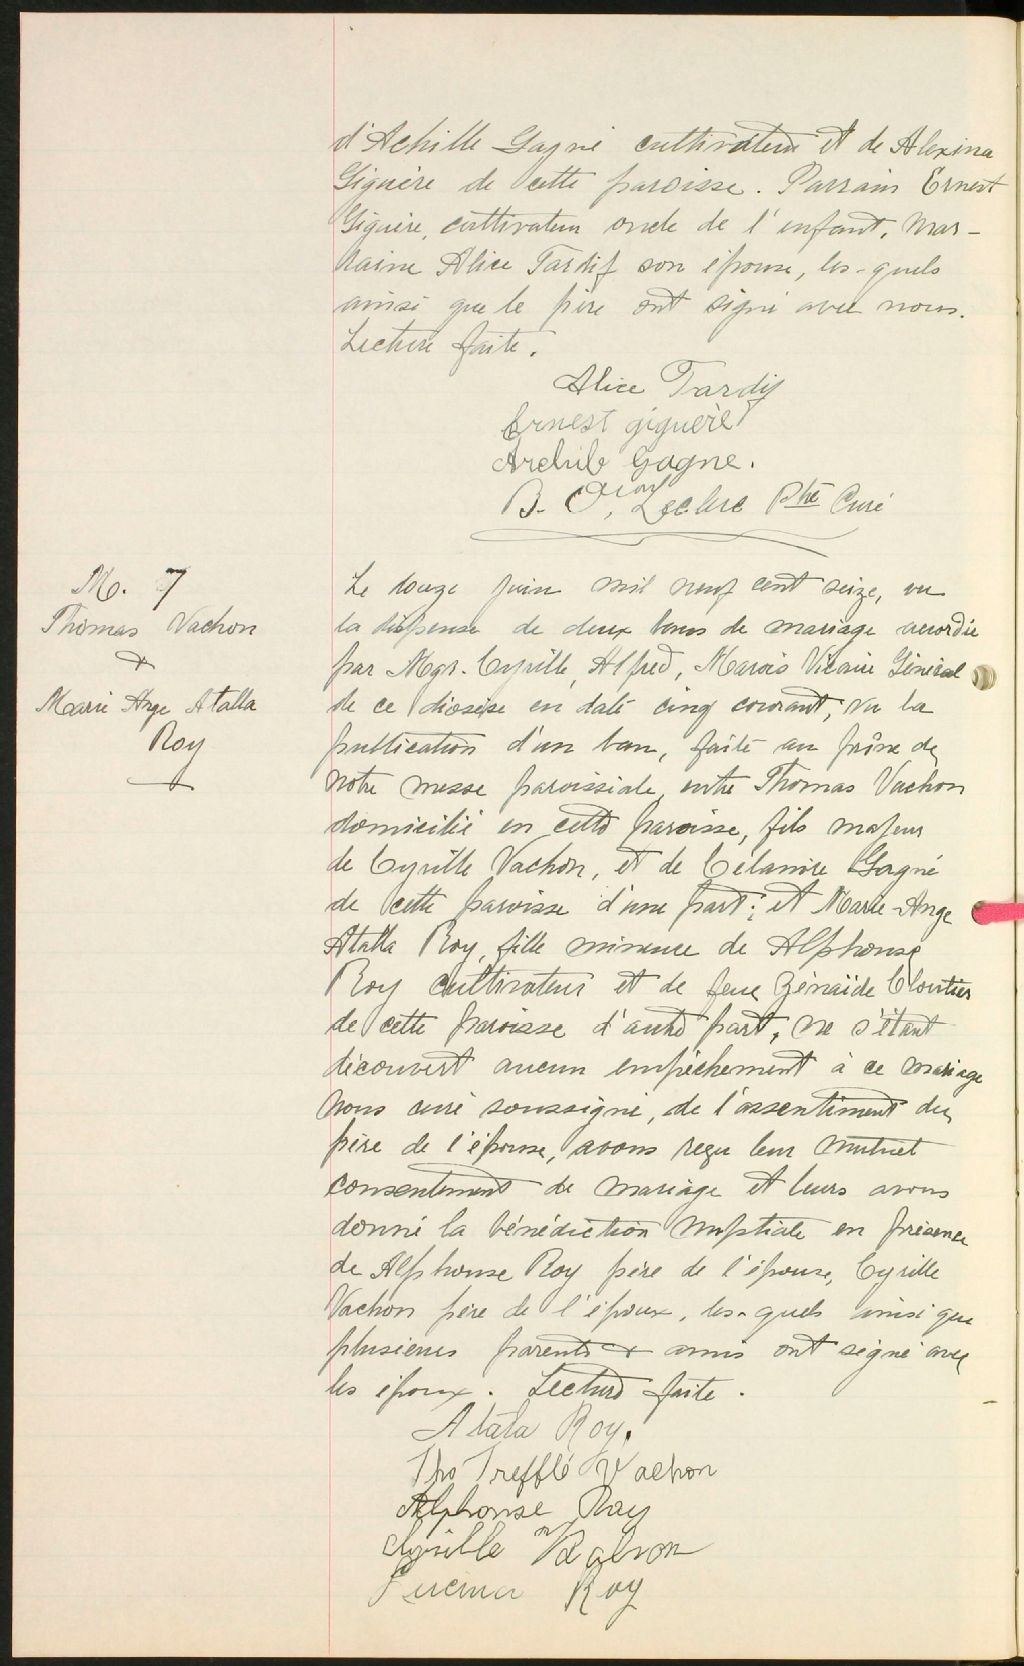 d'Achille Gagné cultivateur et de Alexina
Giguère de cette paroisse. Parrain Ernest
Giguère, cultivateur oncle de l'enfant, mar-
raine Alice Tardif son épouse, les-quels
ainsi que le père ont signé avec nous.
Lecture faite.
Alice Tardif
Ernest giguère
Archile Gagne.
B. O. Leclerc Ptre Curé
M. 7
Thomas Vachon
&
Marie Ange Atalla
Roy
Le douze juin mil neuf cent seize, vu
la dispense de deux bans de mariage accordée
par Mgr. Cyrille, Alfred, Marois Vicaire Général
de ce diocèse en date cinq courant, vu la
publication d'un ban, faite au prône de
notre messe paroissiale, entre Thomas Vachon
domicilié en cette paroisse, fils majeur
de Cyrille Vachon, et de Célanire Gagné
de cette paroisse d'une part; et Marie-Ange
Atalla Roy, fille mineure de Alphonse
Roy cultivateur et de feue Zénaïde Cloutier
de cette paroisse d'autre part, ne s'étant
découvert aucun empêchement à ce mariage
Nous curé soussigné, de l'assentiment du
père de l'épouse, avons reçu leur mutuel
consentement de mariage et leurs avons
donné la bénédiction nuptiale en présence
de Alphonse Roy père de l'épouse, Cyrille
Vachon père de l'époux, les-quels ainsi que
plusieurs parents & amis ont signé avec
les époux. Lecture faite.
Atala Roy.
Ths Trefflé Vachon
Alphonse Roy
Cyrille Vachon
Roy